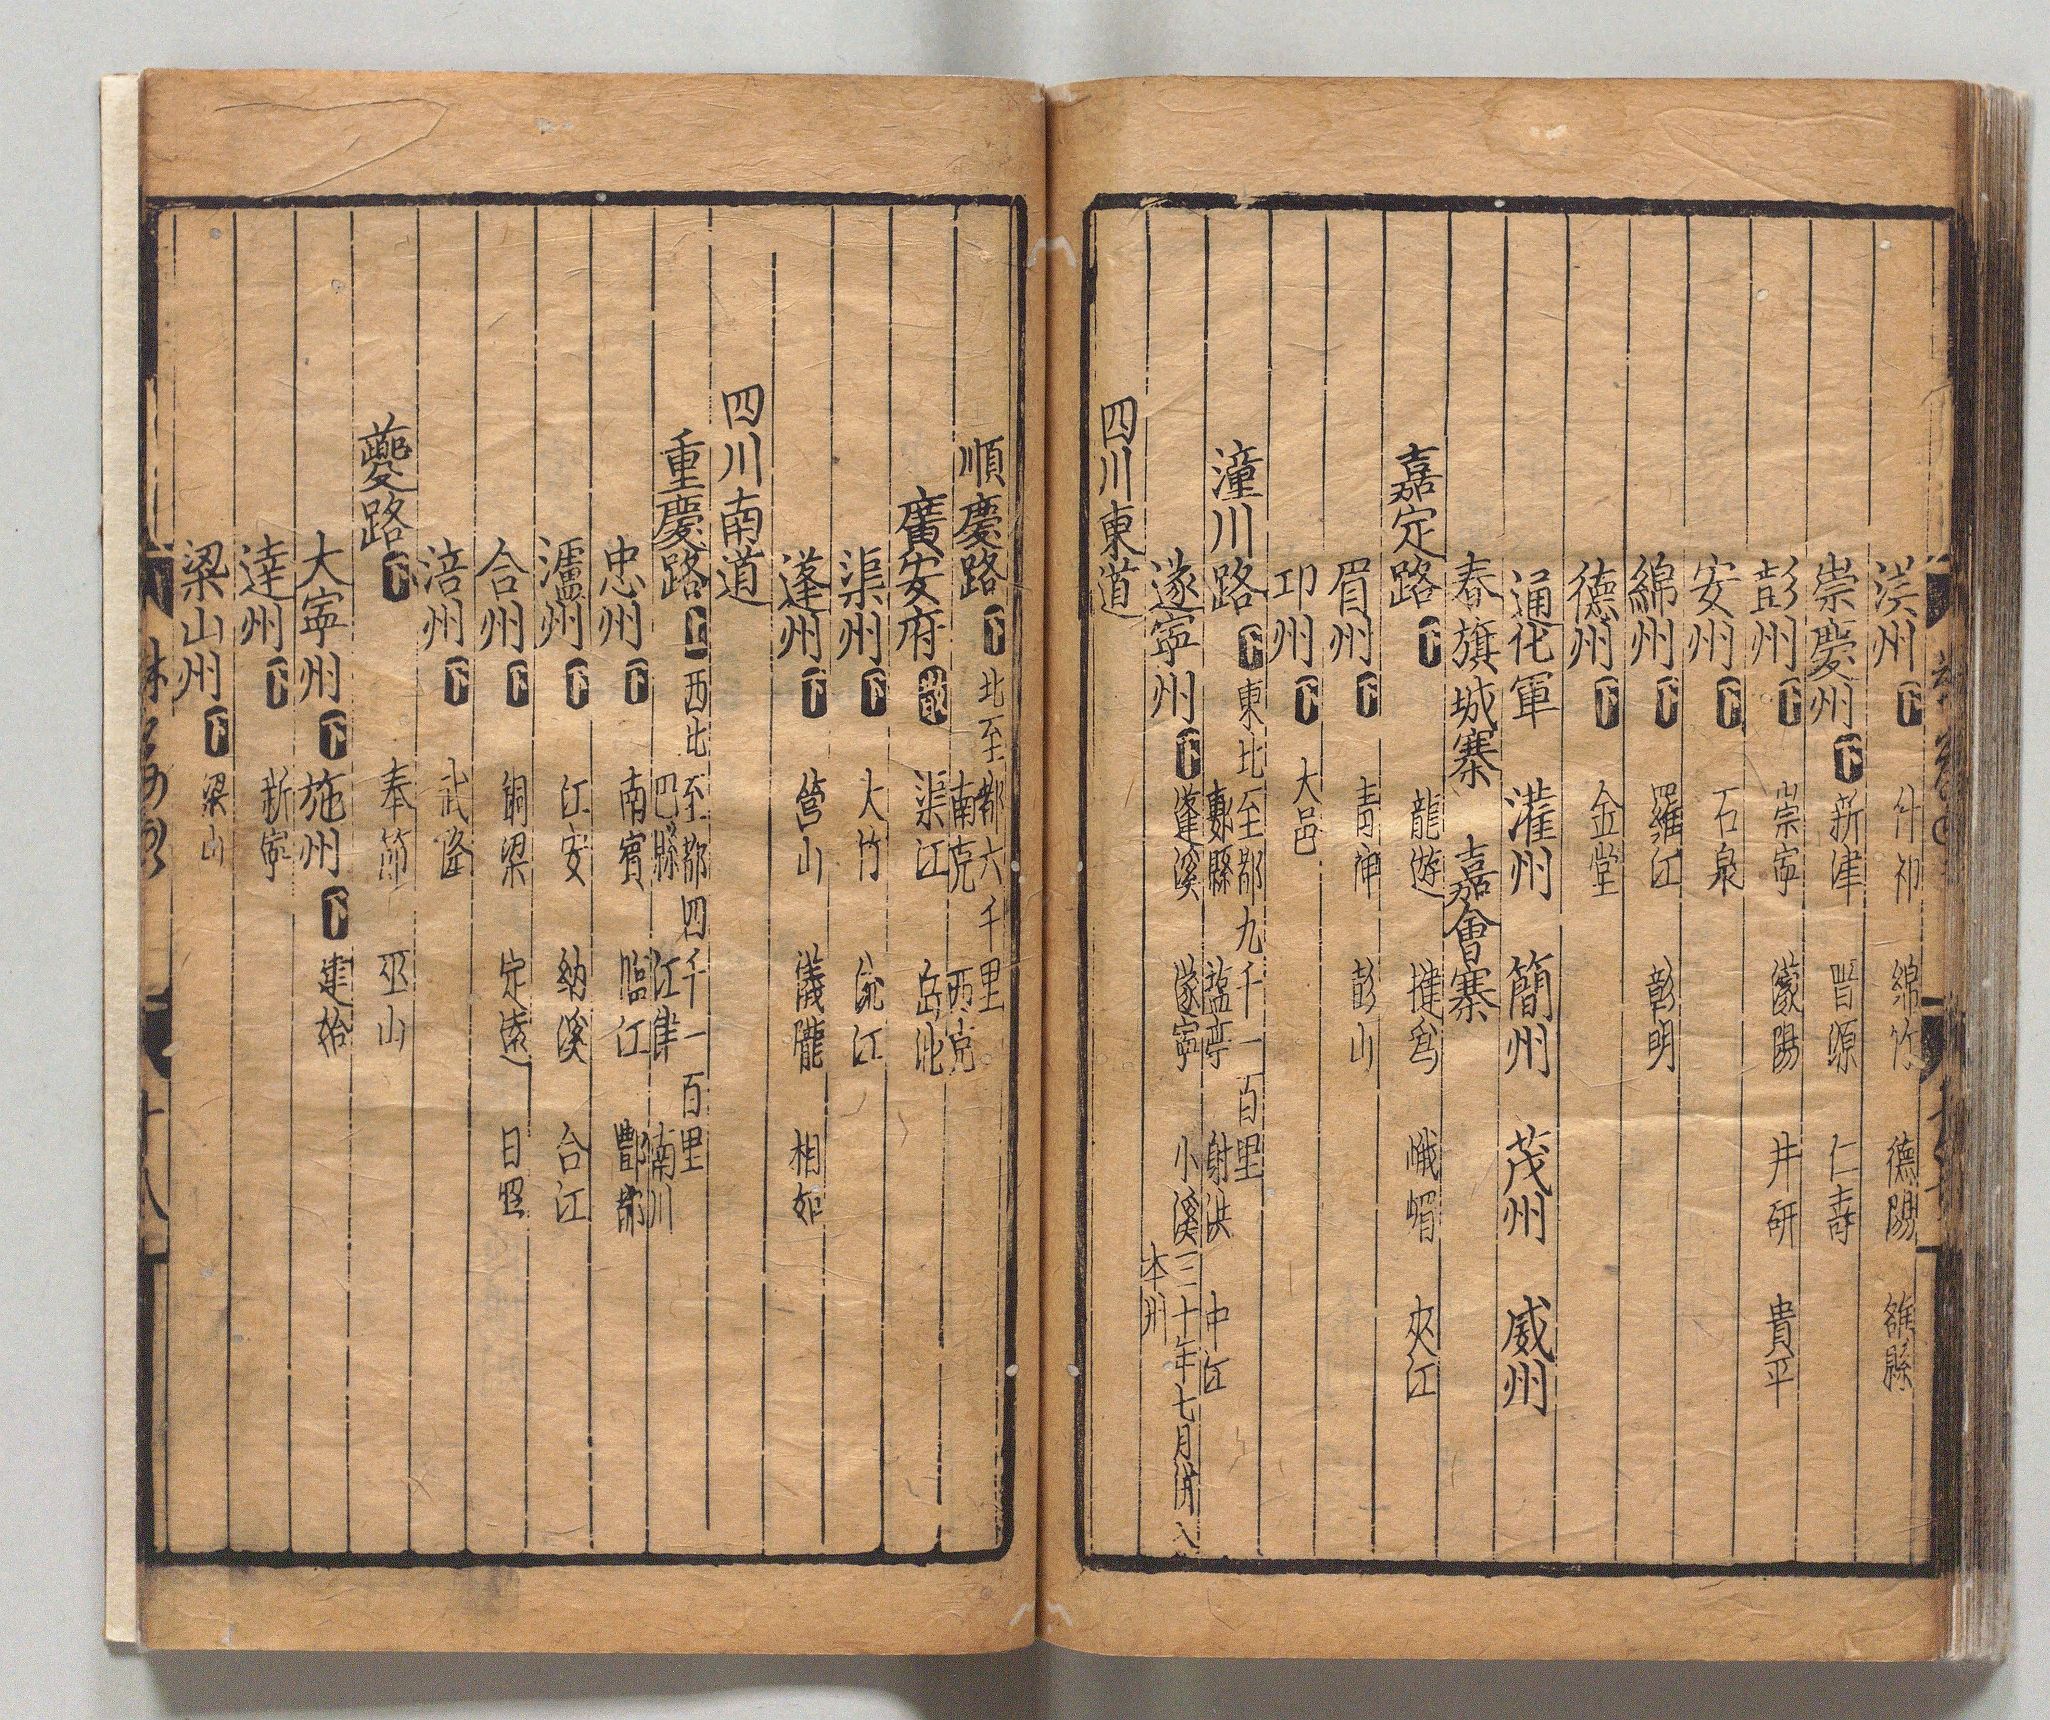 漢州 下 什邡 綿竹 德陽 雒縣
崇慶州 下 新津 晋源 仁壽
彭州 下 崇寧 濛陽 井研 貴平
安州 下 石泉
綿州 下 羅江 彰明
德州 下 金堂
通化軍 灌州 簡州 茂州 威州
春旗城寨 嘉會寨
嘉定路 下 龍遊 揵爲 峨嵋 夾江
眉州 下 青神 彭山
邛州 下 大邑
潼川路 下 東北至都九千一百里
郪縣 塩亭 射洪 中江
遂寧州 下 蓬溪 遂寧 小溪 三十年七月併入本州
四川東道
順慶路 下 北至都六千里
南充 西充
廣安府 散 渠江 岳池
渠州 下 大竹 流江
蓬州 下 營山 儀隴 相如
四川南道
重慶路 上 西北至都四千一百里
巴縣 江津 南川
忠州 下 南賓 臨江 酆都
瀘州 下 江安 納溪 合江
合州 下 銅梁 定遠 日照
涪州 下 武隆
夔路 下 奉節 巫山
大寧州 下 施州 下 建始
達州 下 新寧
梁山州 下 梁山